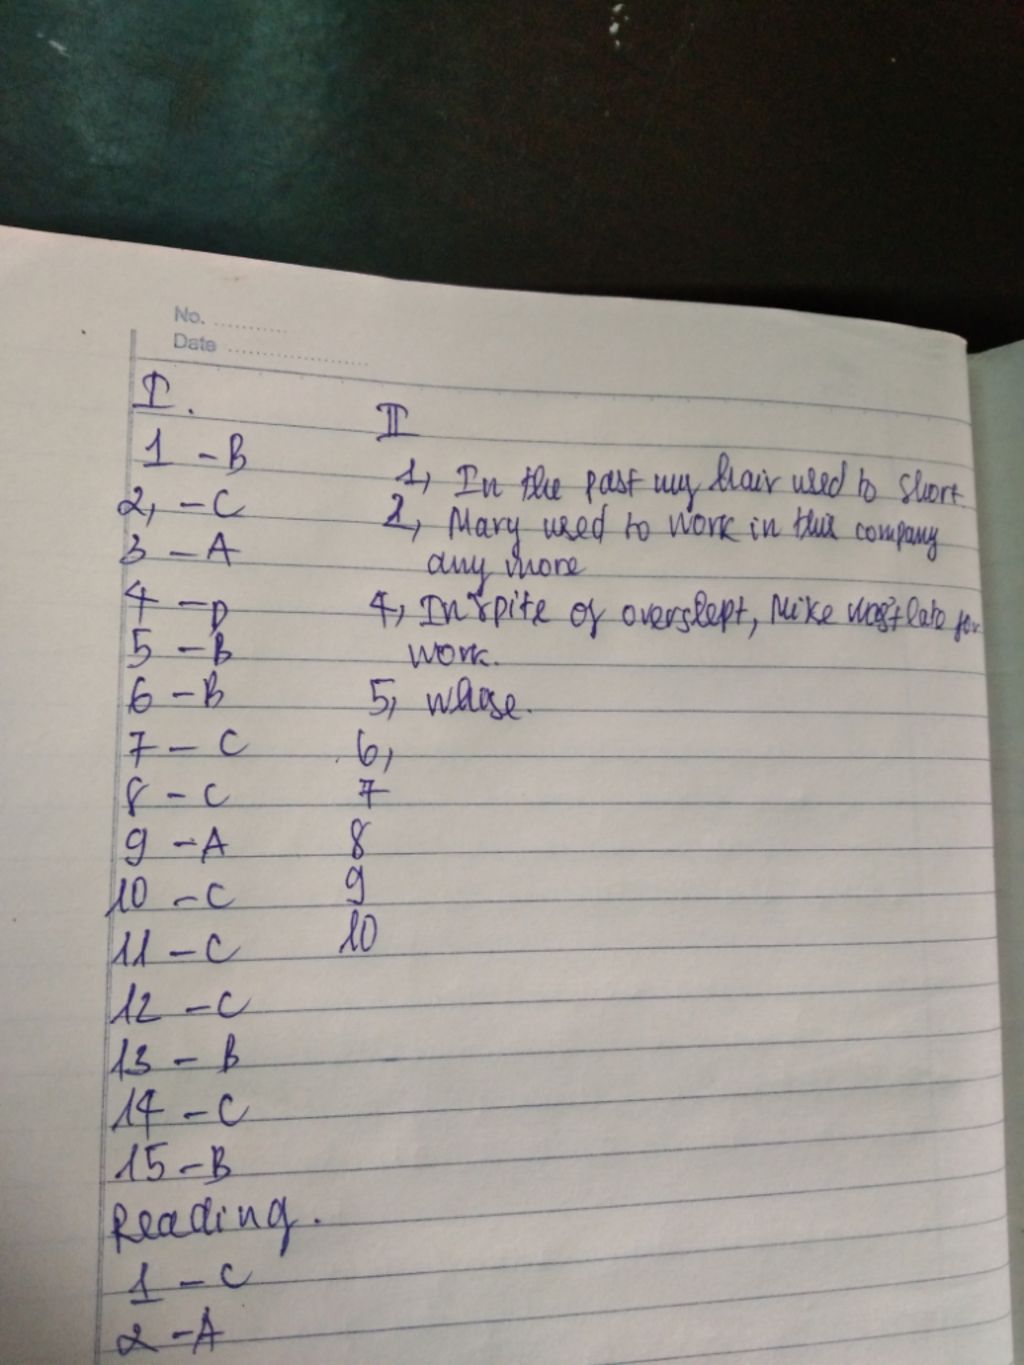 No. ............
Date ......................
I.
1 - B
2, - C
3 - A
4 - D
5 - B
6 - B
7 - C
8 - C
9 - A
10 - C
11 - C
12 - C
13 - B
14 - C
15 - B
Reading.
1 - C
2 - A
II
1, In the past my hair used to short
2, Mary used to work in this company
any more
4, In spite of overslept, Mike late for
work.
5, whose.
6,
7
8
9
10